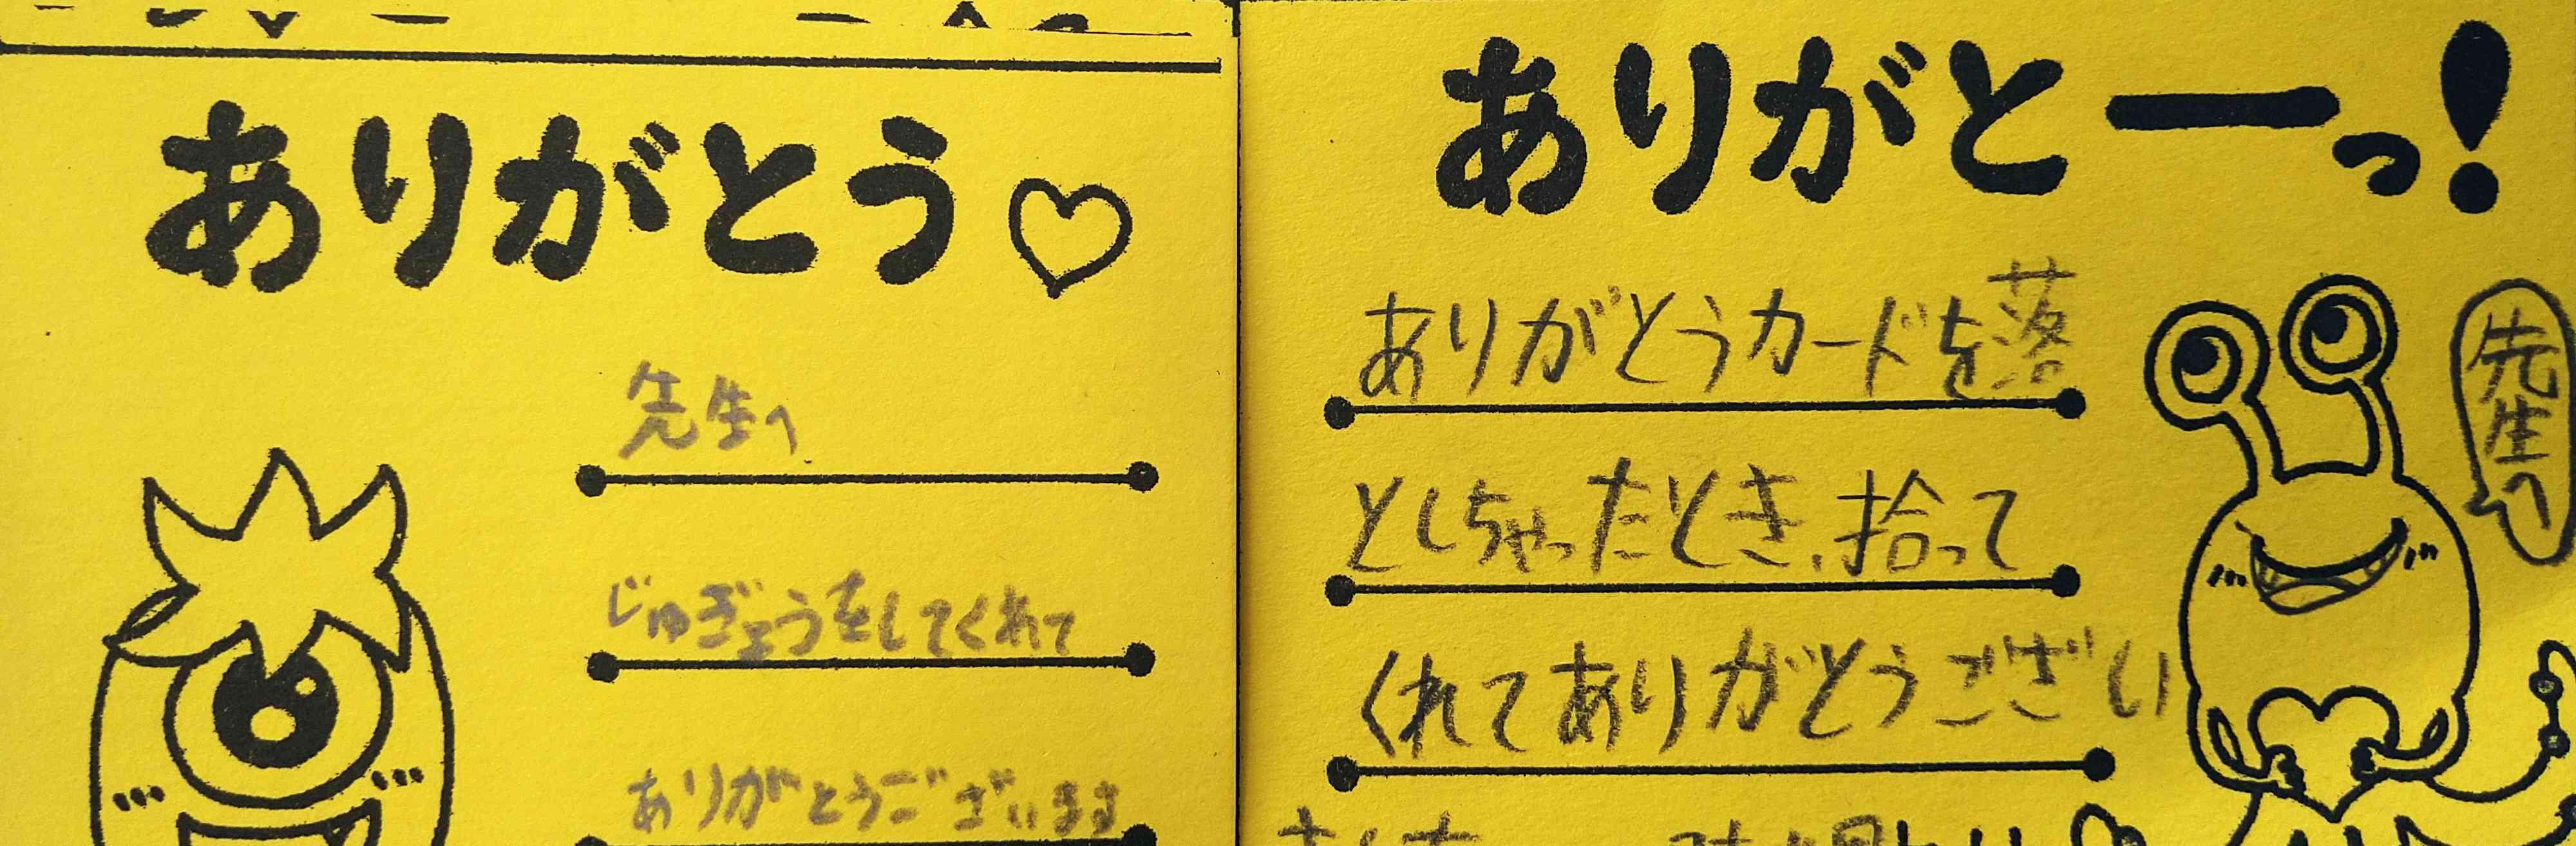 ありがとう♡
先生へ
じゅぎょうをしてくれて
ありがとうございます
ありがとーっ!
先生へ
ありがとうカードを落
としちゃったとき、拾って
くれてありがとうござい